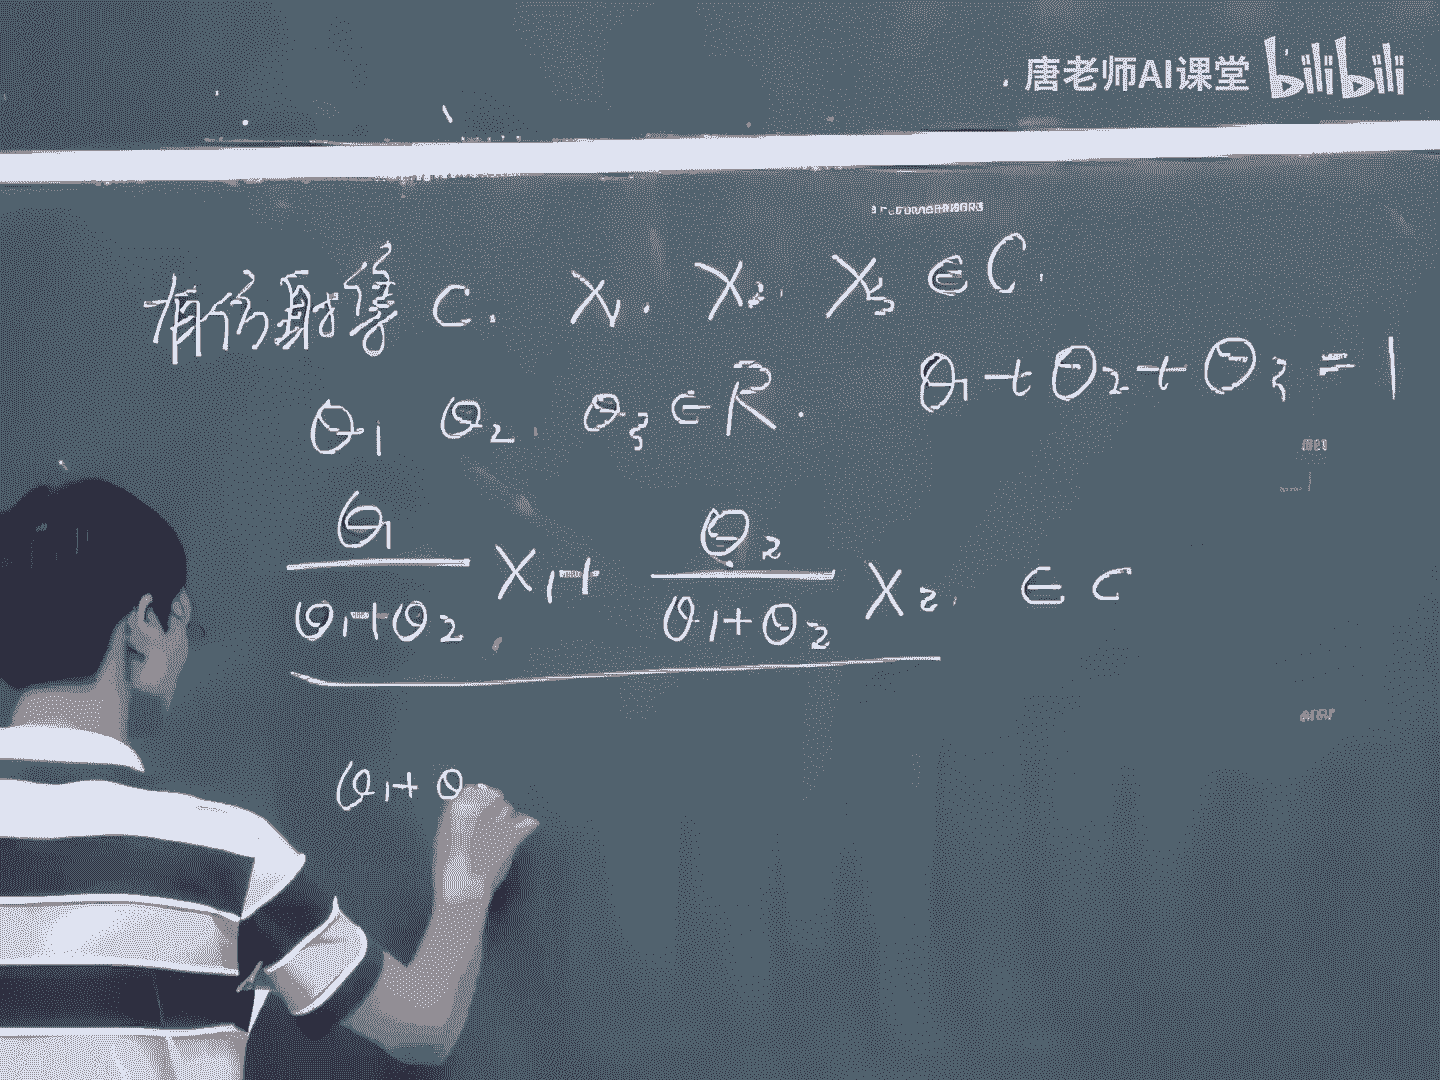 唐老师AI课堂 bilibili
有仿射集 C. X₁. X₂. X₃ ∈ C.
θ₁ θ₂. θ₃ ∈ R. θ₁ + θ₂ + θ₃ = 1
θ₁/(θ₁+θ₂) X₁ + θ₂/(θ₁+θ₂) X₂. ∈ C
θ₁ + θ